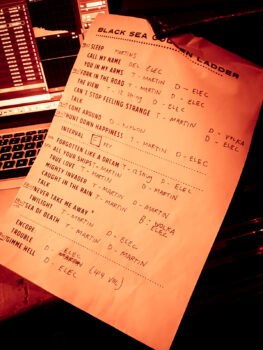 BLACK SEA GOLDEN LADDER
SLEEP MARTINS
CALL MY NAME DEL ELEC
YOU IN MY ARMS T - MARTIN D - ELEC
FORK IN THE ROAD T - MARTIN D - ELEC
THE VIEW T - 12 D - ELEC
CAN'T STOP FEELING STRANGE T - MARTIN D - ELEC
TALK
COME AROUND D -
COUNT DOWN HAPPINESS T - MARTIN D - ELEC
INTERVAL
FORGOTTEN LIKE A DREAM T - 12 D - ELEC
ALL YOUR SHIPS T - MARTIN
TRUE LOVE T - MARTIN D - ELEC
MIGHTY INVADER T - MARTIN
CAUGHT IN THE RAIN T - MARTIN D - MARTIN
TALK
NEVER TAKE ME AWAY
TWILIGHT T - MARTIN D - ELEC
SEA OF DEATH T - MARTIN D - MARTIN
ENCORE
TROUBLE D - ELEC
GIMME HELL D - ELEC